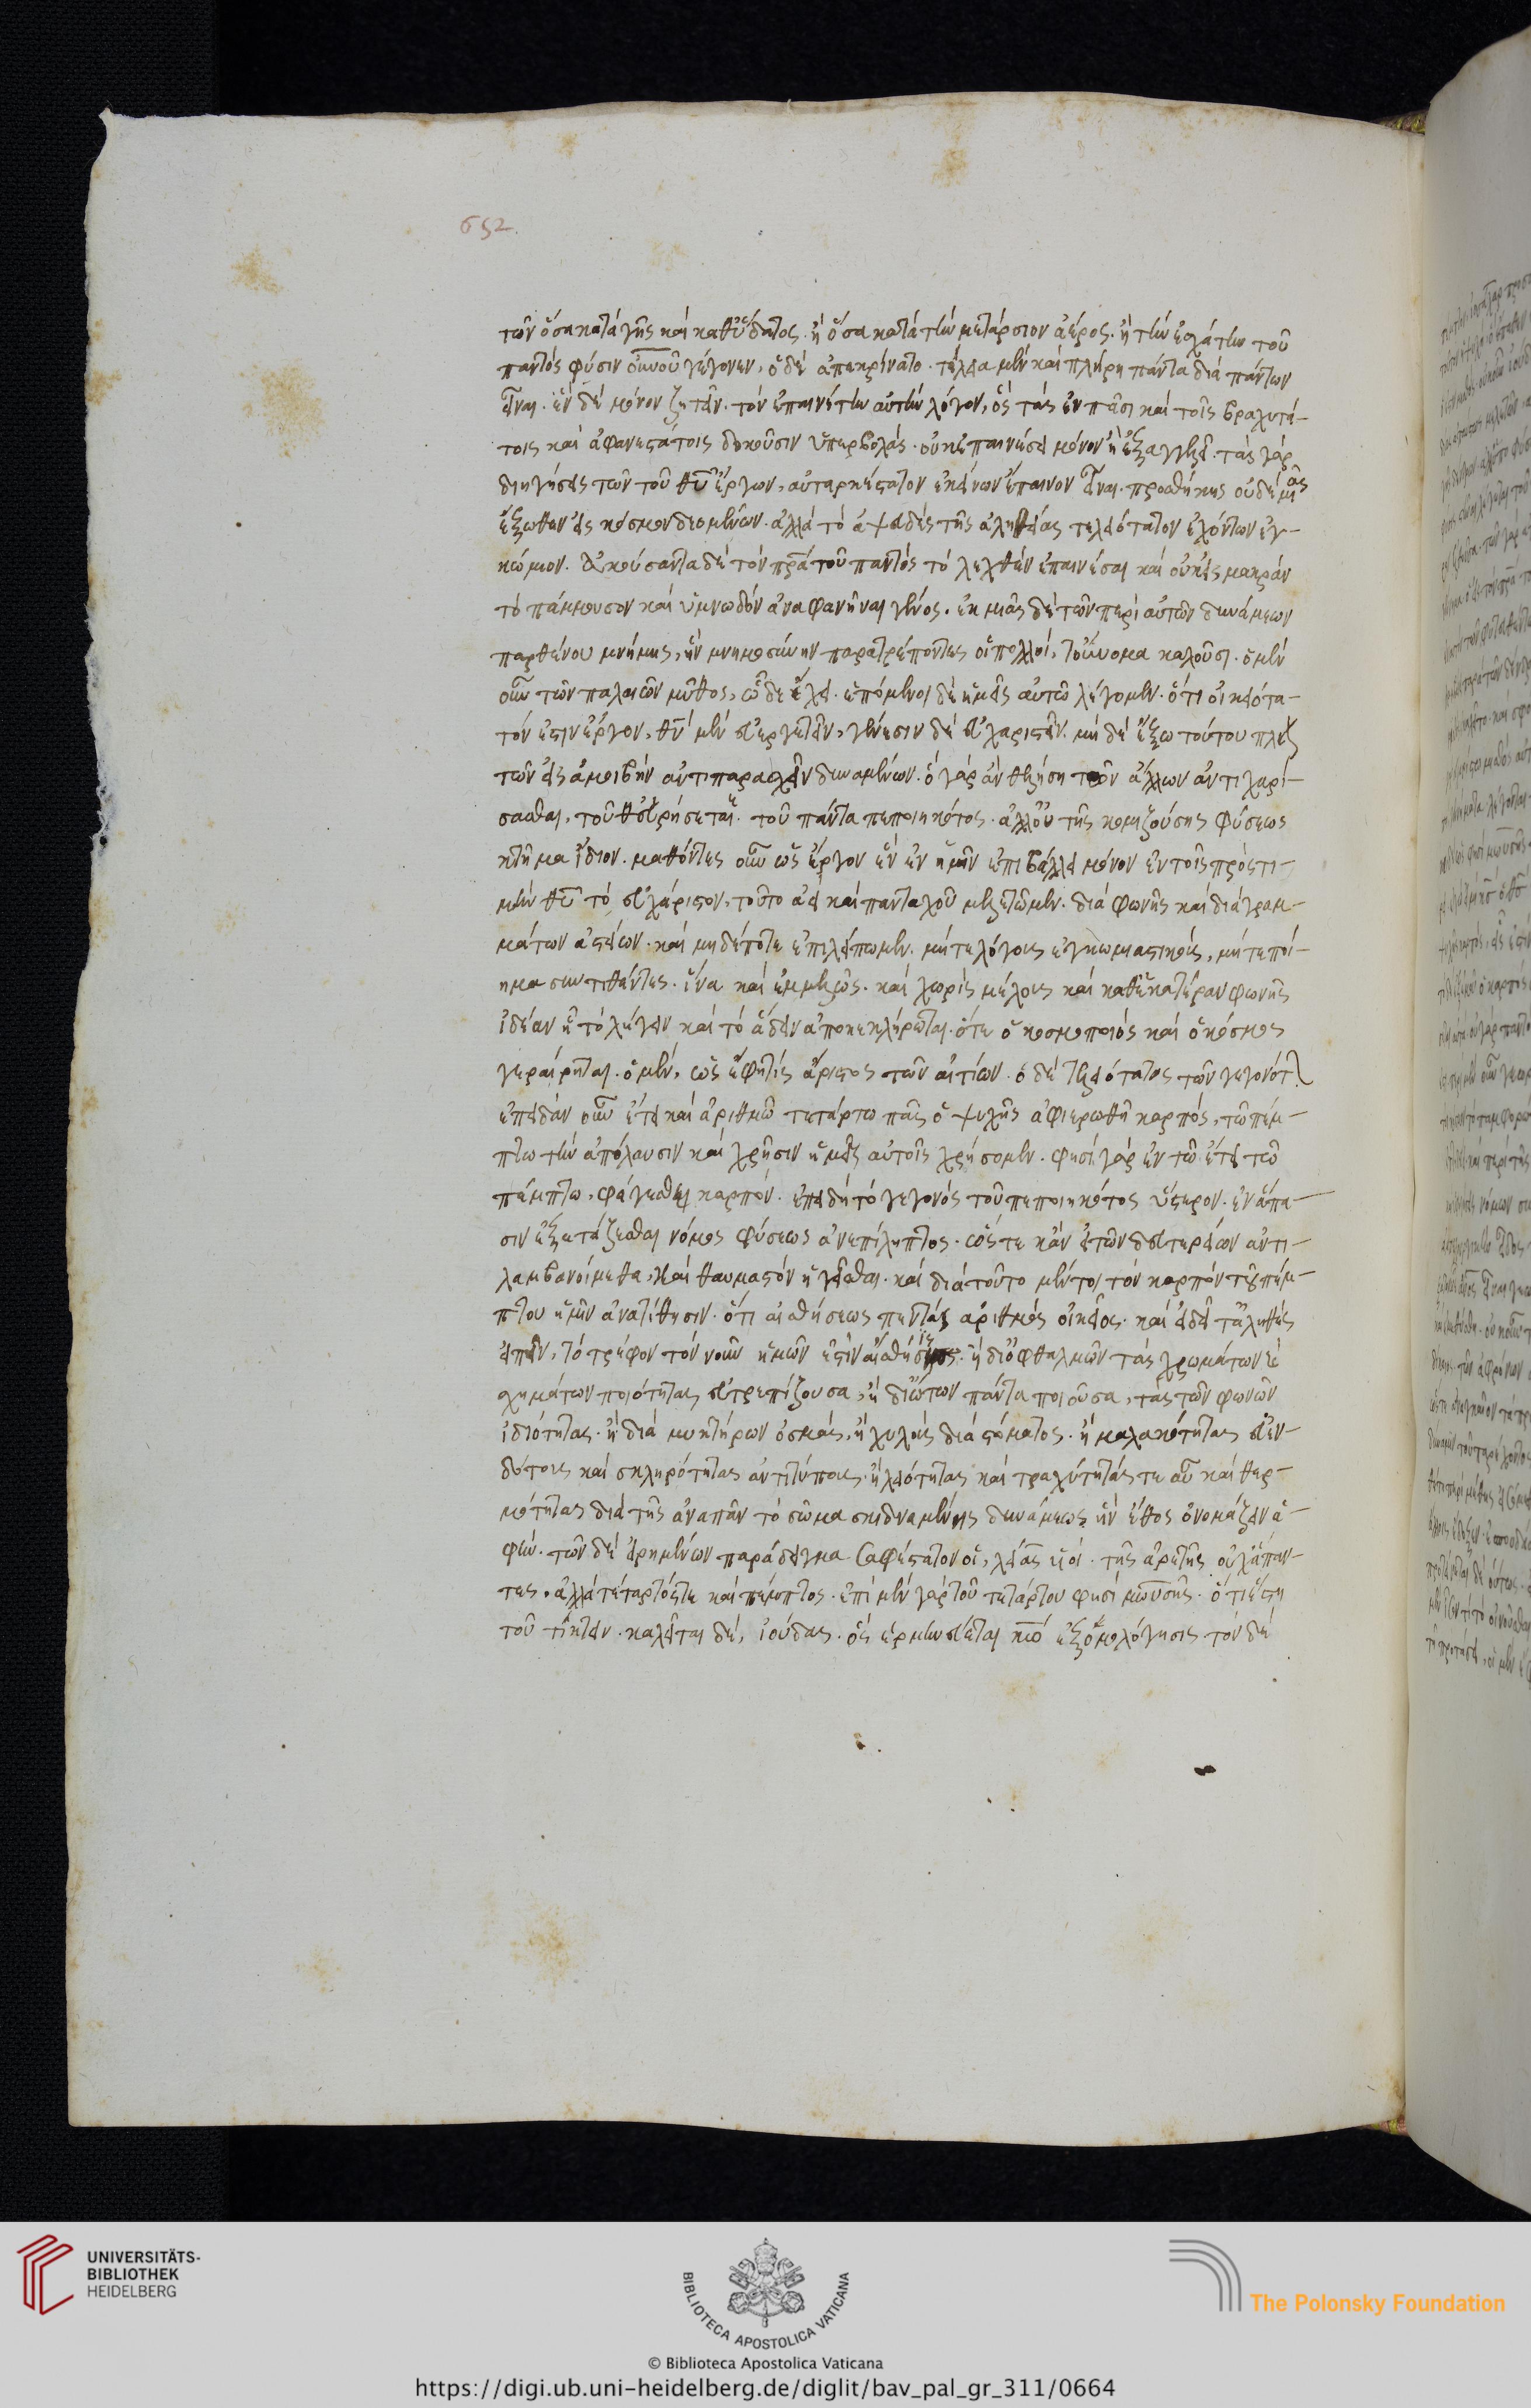 652.
των ὅσα κατὰ γῆς καὶ καθ' ὕδατος. ἢ ὅσα κατὰ τὴν μετάρσιον ἀέρος. ἢ τὴν ἐσχάτην τοῦ
παντὸς φύσιν οὐνοῦ γέγονεν, ὁ δὲ ἀπεκρίνατο. τέλεια μὲν καὶ πλήρη πάντα διὰ πάντων
εἶναι. ἓν δὲ μόνον ζητεῖν. τὸν ἐπαινέτην αὐτῶν λόγον, ὃς τὰς ἐν πᾶσι καὶ τοῖς βραχυτά-
τοις καὶ ἀφανεστάτοις δοκοῦσιν ὑπερβολὰς. οὐκ ἐπαινέσει μόνον ἢ ἐξαγγελεῖ. τὰς γὰρ
διηγήσεις τῶν τοῦ θῦ ἔργων, αὐταρκέστατον ἐκείνων ἔπαινον εἶναι. προσθήκης οὐδεμιᾶς
ἔξωθεν εἰς κόσμον δεομένων. ἀλλὰ τὸ ἀψευδὲς τῆς ἀληθείας τελειότατον ἐχόντων ἐγ-
κώμιον. Ἀκούσαντα δὲ τὸν πρα τοῦ παντὸς τὸ λεχθὲν ἐπαινέσαι καὶ οὐκ εἰς μακρὰν
τὸ πάμμουσον καὶ ὑμνωδὸν ἀναφανῆναι γένος. ἐκ μιᾶς δὲ τῶν περὶ αὐτῶν δυνάμεων
παρθένου μνήμης, ἣν μνημοσύνην παρατρέποντες οἱ πολλοί, τοὔνομα καλοῦσι. ὁ μὲν
οὖν τῶν παλαιῶν μῦθος, ὧδε ἔχει. ἑπόμενοι δὲ ἡμεῖς αὐτῶ λέγομεν. ὅτι οἰκειότα-
τόν ἐστιν ἔργον, θῦ μὲν εὐεργετεῖν, γένεσιν δὲ εὐχαριστεῖν. μὴ δὲ ἔξω τούτου πλεῖ
τῶν εἰς ἀμοιβὴν ἀντιπαρασχεῖν δυναμένων. ὃ γὰρ ἂν θελήση τῶν ἄλλων ἀντιχαρί-
σασθαι, τοῦθ' εὑρήσεται. τοῦ πάντα πεποιηκότος. ἀλλ' οὐ τῆς κομιζούσης φύσεως
κτῆμα ἴδιον. μαθόντες οὖν ὡς ἔργον ἓν ἐν ἡμῖν ἐπιβάλλει μόνον ἐν τοῖς πρὸς τι-
μὴν θῦ τὸ εὐχάριστον, τοῦτο ἀεὶ καὶ πανταχοῦ μελετῶμεν. διὰ φωνῆς καὶ διὰ γραμ-
μάτων ἀστείων. καὶ μηδέποτε ἐπιλείπωμεν. μήτε λόγους ἐγκωμιαστικούς, μήτε ποί-
ημα συντιθέντες. ἵνα καὶ ἐμμελῶς. καὶ χωρὶς μέλους καὶ καθ' ἑκατέραν φωνῆς
ἰδέαν ἢ τὸ λέγειν καὶ τὸ ᾄδειν ἀποκεκλήρωται. ὅτε ὁ κοσμοποιὸς καὶ ὁ κόσμος
γεραίρηται. ὁ μὲν, ὡς ἔφητις ἄριστος τῶν αἰτίων. ὁ δὲ τελειότατος τῶν γεγονότ
ἐπειδὰν οὖν ἔτει καὶ ἀριθμῶ τετάρτω πᾶς ὁ ψυχῆς ἀφιερωθῆ καρπός, τῶ πέμ-
πτω τὴν ἀπόλαυσιν καὶ χρῆσιν ἡμεῖς αὐτοῖς χρήσομεν. φησὶ γὰρ ἐν τῶ ἔτει τῶ
πέμπτω, φάγεσθε καρπόν. ἐπειδὴ τὸ γεγονὸς τοῦ πεποιηκότος ὕστερον. ἐν ἅπα-
σιν ἐξετάζεσθαι νόμος φύσεως ἀνεπίληπτος. ὥστε κἂν ἐτῶν δευτερείων ἀντι-
λαμβανοίμεθα, Καὶ θαυμαστὸν ἡγεῖσθαι. καὶ διὰ τοῦτο μέντοι τὸν καρπὸν τοῦ πέμ-
πτου ἡμῖν ἀνατίθησιν. ὅτι αἰσθήσεως πεντὰς ἀριθμὸς οἰκεῖος. καὶ εἰ δεῖ τἀληθὲς
εἰπεῖν, τὸ τρέφον τὸν νοῦν ἡμῶν ἐστιν αἴσθησις. ἡ δι' ὀφθαλμῶν τὰς χρωμάτων καὶ
σχημάτων ποιότητας εὐτρεπίζουσα, ἡ δι' ὤτων πάντα ποιοῦσα, τὰς τῶν φωνῶν
ἰδιότητας. ἡ διὰ μυκτήρων ὀσμάς, ἡ χυλοὺς διὰ στόματος. ἡ μαλακότητας εὐεν-
δότους καὶ σκληρότητας ἀντιτύπους. ἡ λειότητας καὶ τραχύτητάς τε αὖ καὶ θερ-
μότητας διὰ τῆς ἀναπᾶν τὸ σῶμα σκιδναμένης δυνάμεως ἣν ἔθος ὀνομάζειν ἁ-
φὴν. τῶν δὲ εἰρημένων παράδειγμα Σαφέστατον οἱ, λείας υἱοί. τῆς ἀρετῆς οὐχ ἅπαν-
τες, ἀλλὰ τέταρτός τε καὶ πέμπτος. ἐπὶ μὲν γὰρ τοῦ τετάρτου φησὶ μωυσῆς. ὅτι ἔστη
τοῦ τίκτειν. καλεῖται δὲ, ἰούδας. ὃς ἑρμηνεύεται κω ἐξομολόγησις τὸν δὲ
UNIVERSITÄTS-
BIBLIOTHEK
HEIDELBERG
BIBLIOTECA APOSTOLICA VATICANA
The Polonsky Foundation
© Biblioteca Apostolica Vaticana
https://digi.ub.uni-heidelberg.de/diglit/bav_pal_gr_311/0664